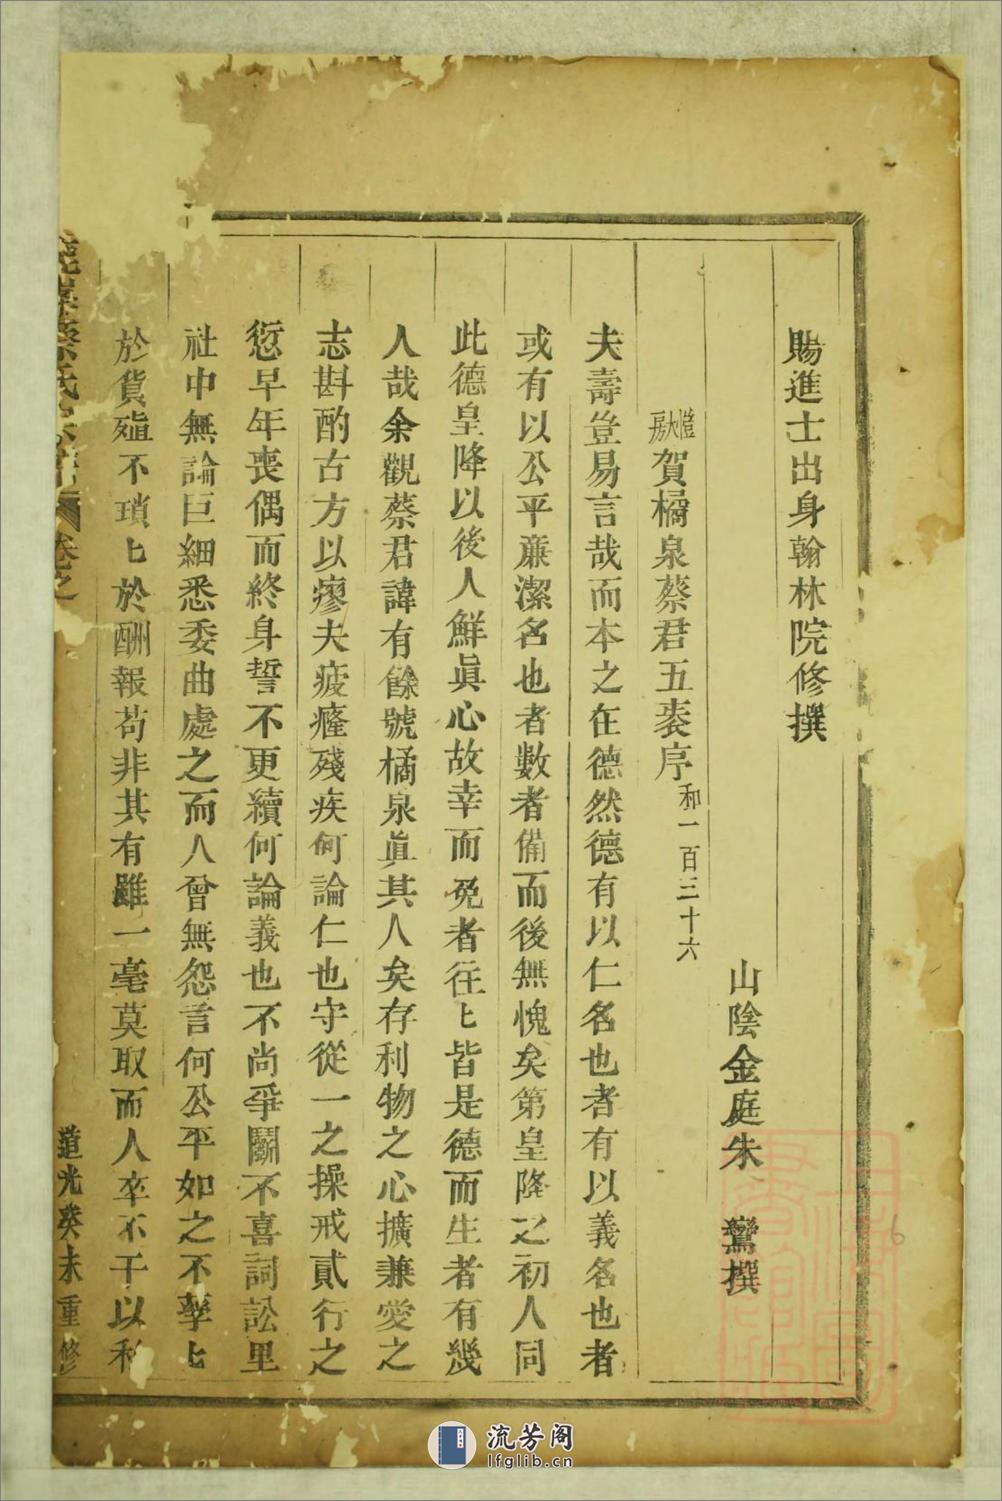 賜進士出身翰林院修撰
山陰金庭朱　鸞撰
愷大房賀橘泉蔡君五袠序和一百三十六
夫壽豈易言哉而本之在德然德有以仁名也者有以義名也者
或有以公平亷潔名也者數者備而後無愧矣第皇降之初人同
此德皇降以後人鮮眞心故幸而免者往〻皆是德而生者有幾
人哉余觀蔡君諱有餘號橘泉眞其人矣存利物之心擴兼愛之
志斟酌古方以瘳夫疲癃殘疾何論仁也守從一之操戒貳行之
愆早年喪偶而終身誓不更續何論義也不尚爭鬭不喜詞訟里
社中無論巨細悉委曲處之而人曾無怨言何公平如之不孳〻
於貨殖不瑣〻於酬報苟非其有雖一毫莫取而人卒不干以私
蔡氏宗譜　卷之
道光癸未重修
6
流芳阁
lfglib.cn